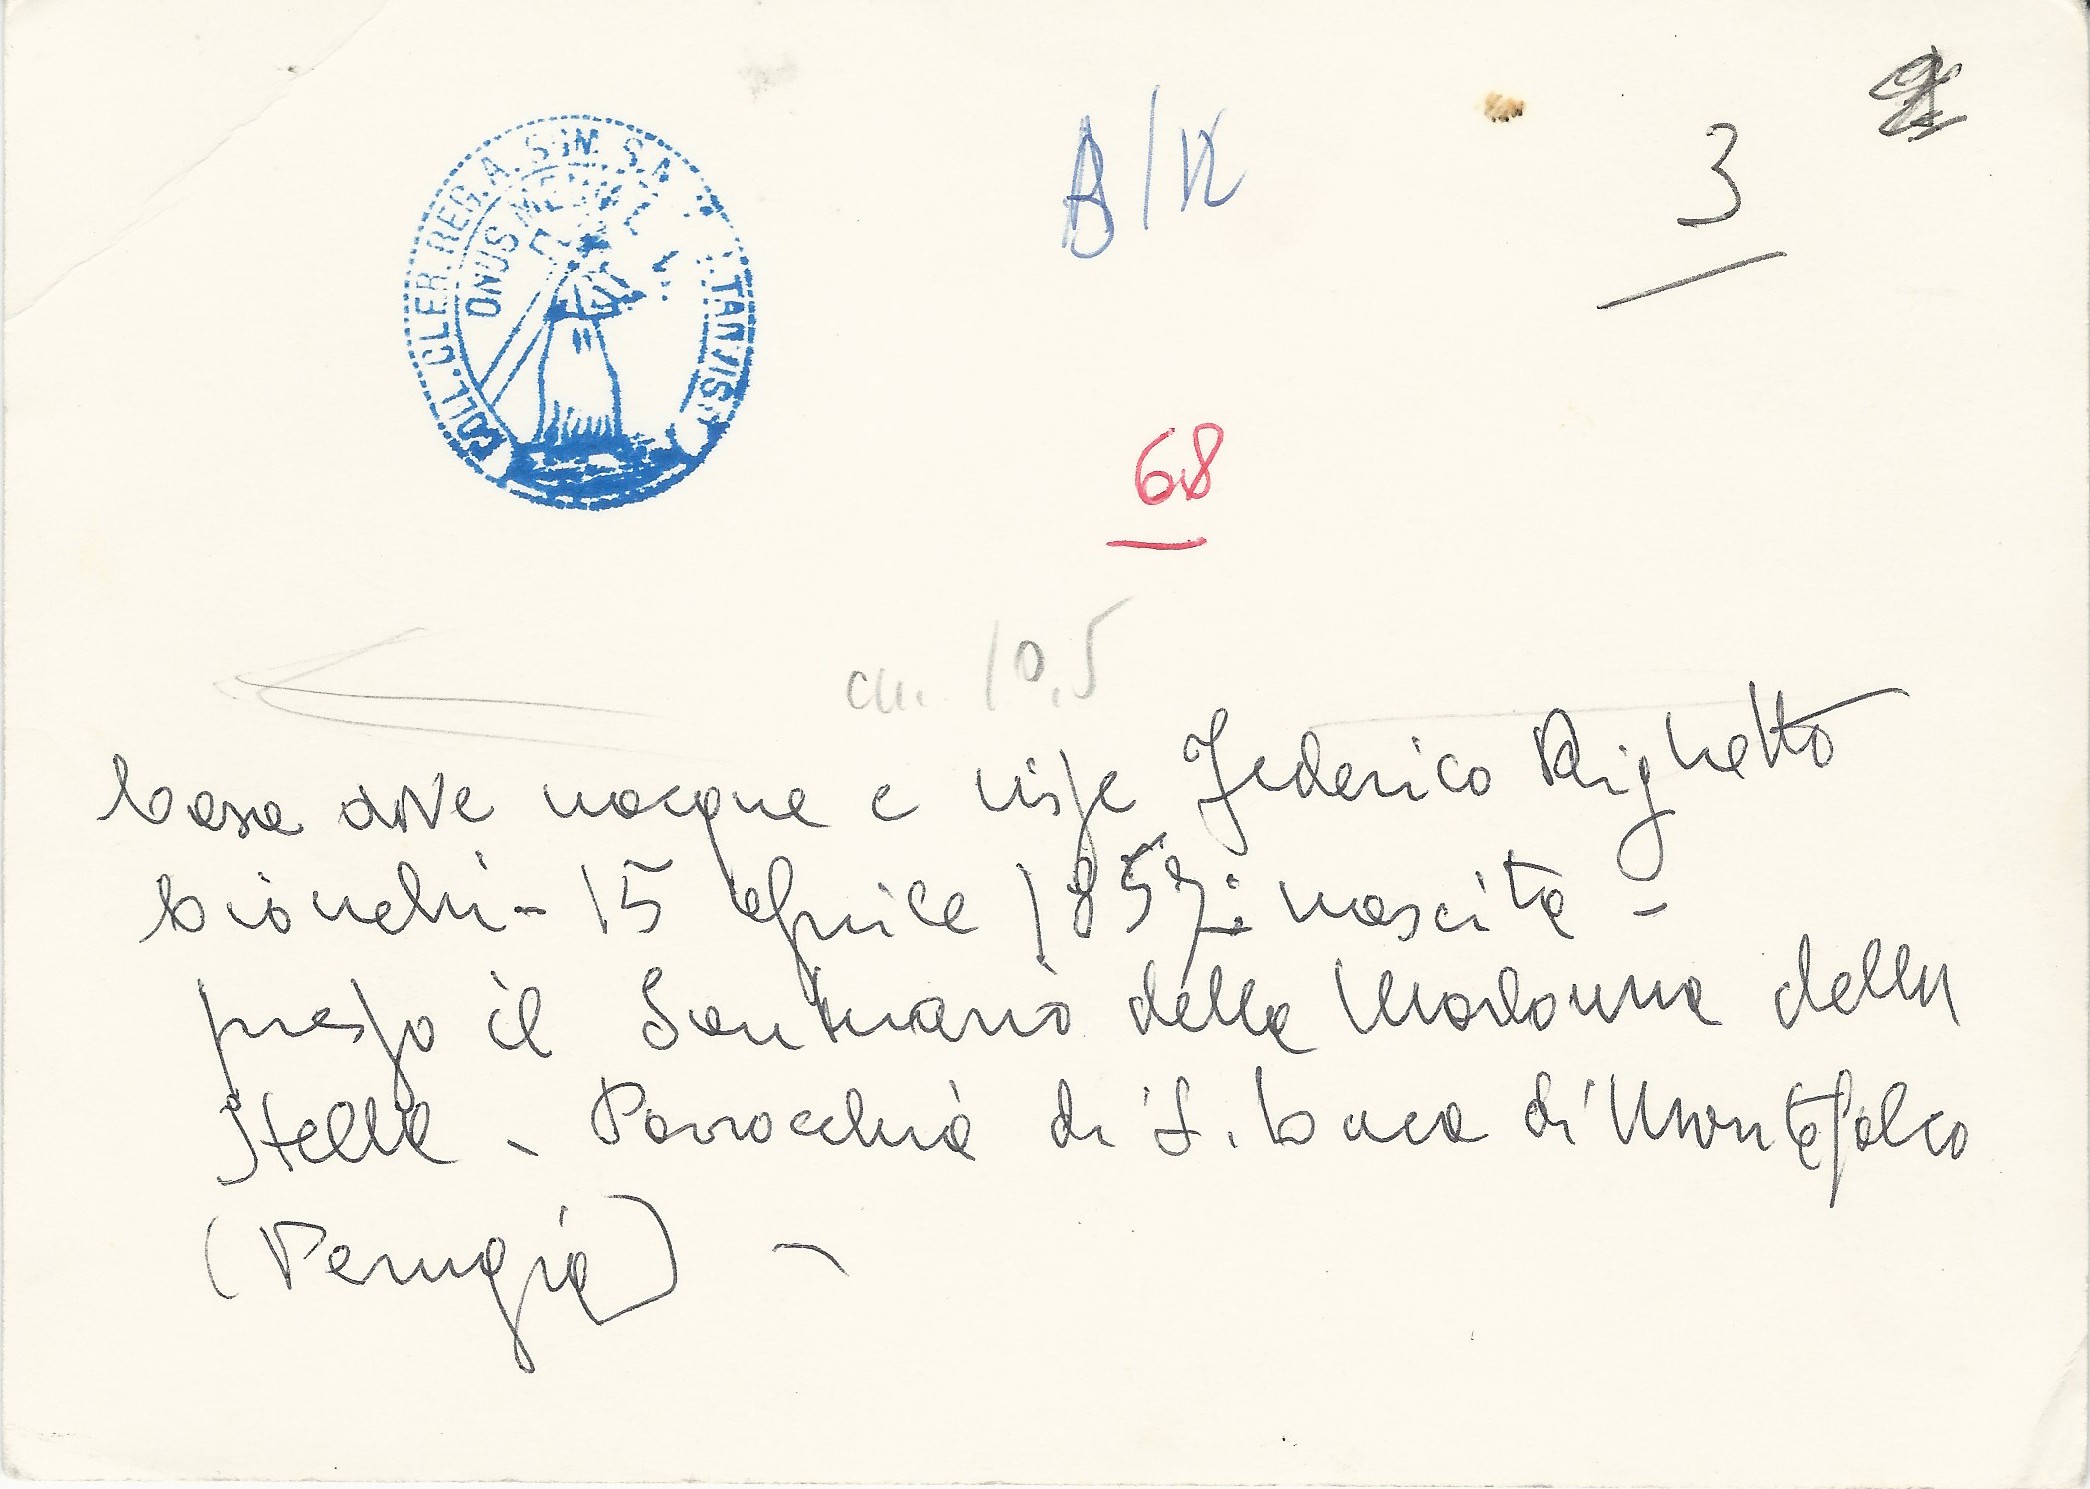 COLL. CLER. REG. A. SOM. S.
ONUS MEUM L
B/N
3
68
cm. 10,5
Casa dove nacque e visse Federico Righetto
Cionchi - 15 aprile 1857: nascita -
presso il Santuario della Madonna della
Stella - Parrocchia di S. Luca di Montefalco
(Perugia) -